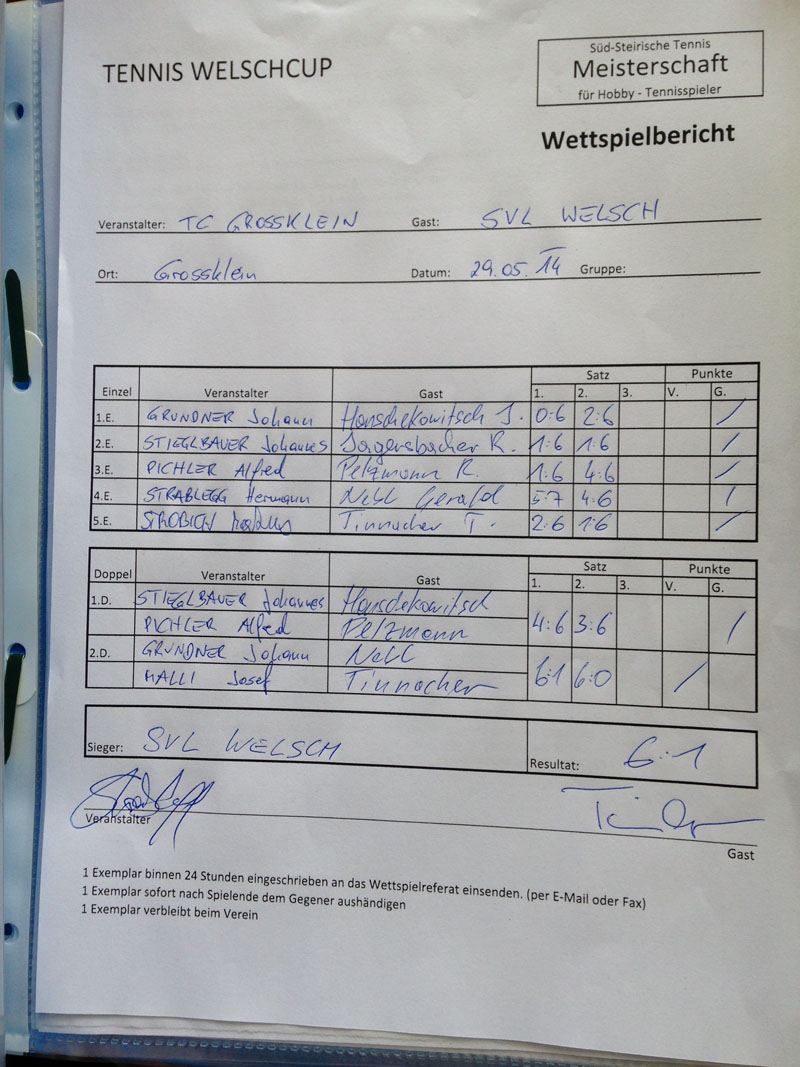 TENNIS WELSCHCUP
Süd-Steirische Tennis
Meisterschaft
für Hobby - Tennisspieler
Wettspielbericht
Veranstalter: TC GROSSKLEIN Gast: SVL WELSCH
Ort: Grossklein Datum: 29.05.14 Gruppe:
Satz Punkte
Einzel Veranstalter Gast 1. 2. 3. V. G.
1.E. GRUNDNER Johann Honschekowitsch J. 0:6 2:6 /
2.E. STIEGLBAUER Johannes Jagersbacher R. 1:6 1:6 /
3.E. PICHLER Alfred Pelzmann R. 1:6 4:6 /
4.E. STRABLEGG Hermann Nell Gerald 5:7 4:6 /
5.E. Tinnacher T. 2:6 1:6 /
Satz Punkte
Doppel Veranstalter Gast 1. 2. 3. V. G.
1.D. STIEGLBAUER Johannes Honschekowitsch
PICHLER Alfred Pelzmann 4:6 3:6 /
2.D. GRUNDNER Johann Nell
HALLI Josef Tinnacher 6:1 6:0 /
Sieger: SVL WELSCH Resultat: 6:1
Veranstalter
Gast
1 Exemplar binnen 24 Stunden eingeschrieben an das Wettspielreferat einsenden. (per E-Mail oder Fax)
1 Exemplar sofort nach Spielende dem Gegener aushändigen
1 Exemplar verbleibt beim Verein